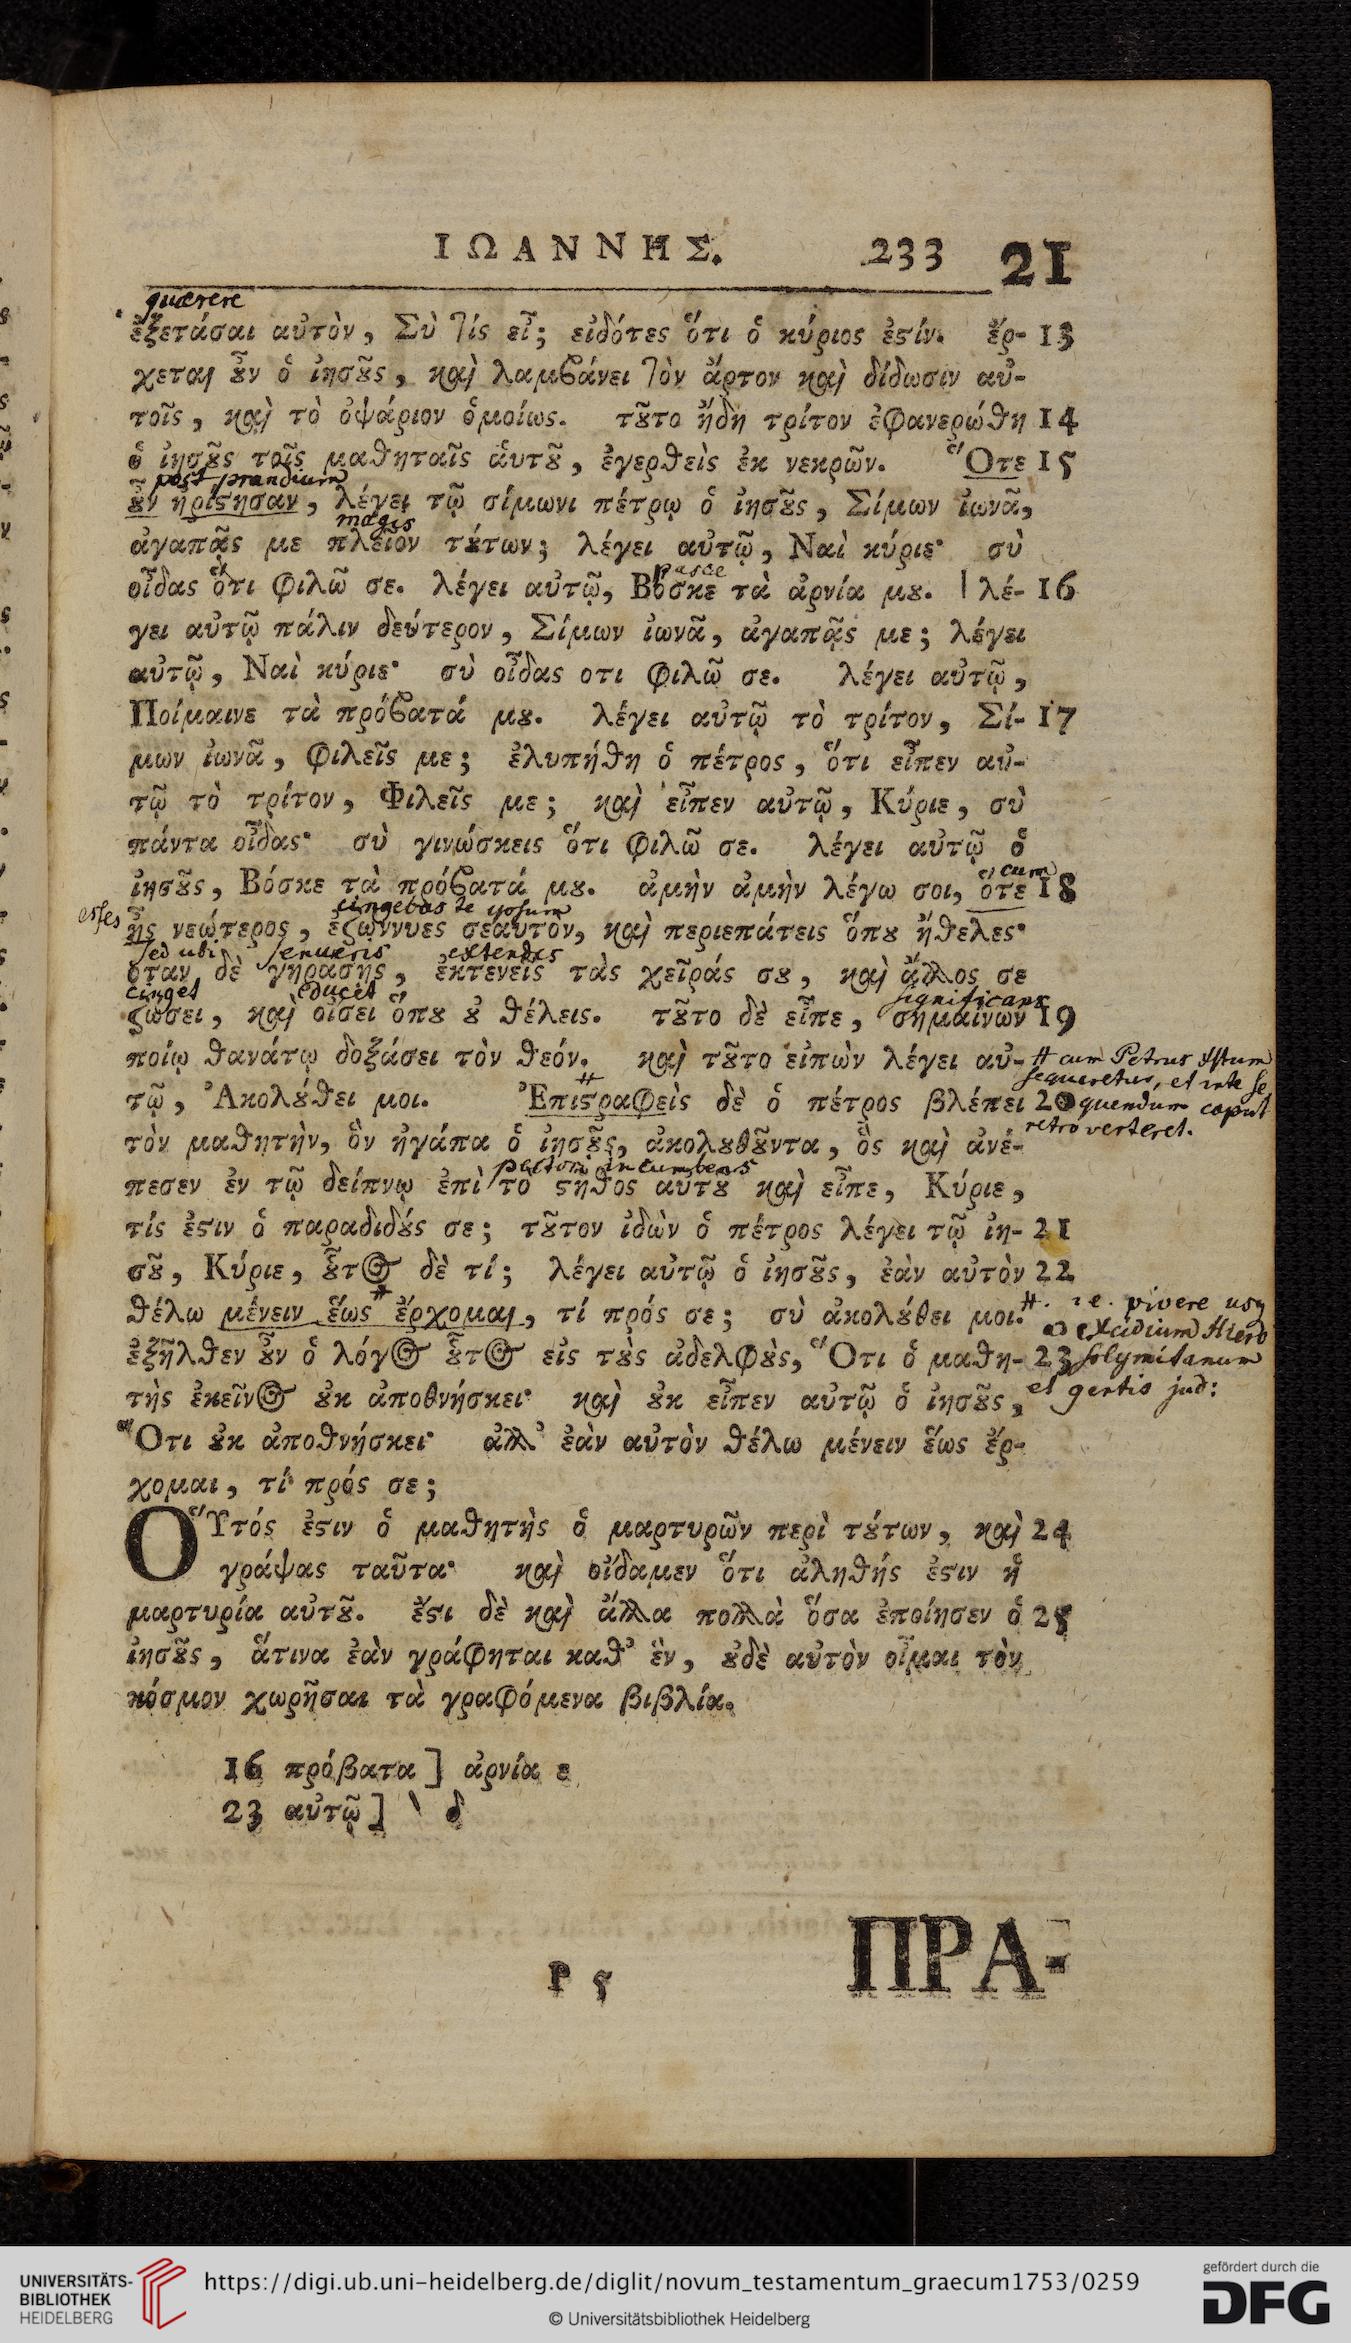 ΙΩΑΝΝΗΣ. 233 21
quærere
ἐξετάσαι αὐτὸν, Σὺ τίς εἶ; εἰδότες ὅτι ὁ κύριος ἐϛίν. ἔρ- 13
χεται ȣ̓͂ν ὁ ἰησȣ͂ς, καὶ λαμβάνει τὸν ἄρτον καὶ δίδωσιν αὐ-
τοῖς, καὶ τὸ ὀψάριον ὁμοίως. τȣ͂το ἤδη τρίτον ἐφανερώθη 14
ὁ ἰησȣ͂ς τοῖς μαθηταῖς ἁυτȣ͂, ἐγερθεὶς ἐκ νεκρῶν. Ὅτε 15
post prandium
ȣ̓͂ν ἠρίϛησαν, λέγει τῷ σίμωνι πέτρῳ ὁ ἰησȣ͂ς, Σίμων ἰωνᾶ,
magis
ἀγαπᾷς με πλεῖον τȣ́των; λέγει αὐτῷ, Ναὶ κύριε· σὺ
pasce
οἶδας ὅτι φιλῶ σε. λέγει αὐτῷ, Βόσκε τὰ ἀρνία μȣ. | λέ- 16
γει αὐτῷ πάλιν δεύτερον, Σίμων ἰωνᾶ, ἀγαπᾷς με; λέγει
αὐτῷ, Ναὶ κύριε· σὺ οἶδας οτι φιλῶ σε. λέγει αὐτῷ,
Ποίμαινε τὰ πρόβατά μȣ. λέγει αὐτῷ τὸ τρίτον, Σί- 17
μων ἰωνᾶ, φιλεῖς με; ἐλυπήθη ὁ πέτρος, ὅτι εἶπεν αὐ-
τῷ τὸ τρίτον, Φιλεῖς με; καὶ εἶπεν αὐτῷ, Κύριε, σὺ
πάντα οἶδας· σὺ γινώσκεις ὅτι φιλῶ σε. λέγει αὐτῷ ὁ
cum
ἰησȣ͂ς, Βόσκε τὰ πρόβατά μȣ. ἀμὴν ἀμὴν λέγω σοι, ὅτε 18
esses cingebas te ipsum
ἦς νεώτερος, ἐζώννυες σεαυτὸν, καὶ περιεπάτεις ὅπȣ ἤθελες·
sed ubi senueris extendes
ὅταν δὲ γηράσῃς, ἐκτενεῖς τὰς χεῖράς σȣ, καὶ ἄλλος σε
cinget educet significans
ζώσει, καὶ οἴσει ὅπȣ ȣ̓ θέλεις. τȣ͂το δὲ εἶπε, σημαίνων 19
ποίῳ θανάτῳ δοξάσει τὸν θεόν. καὶ τȣ͂το εἰπὼν λέγει αὐ- # cum Petrus Xstum
sequeretur, et inte se
τῷ, Ἀκολȣ́θει μοι. # Ἐπιϛραφεὶς δὲ ὁ πέτρος βλέπει 20 quendum caput
retro verteret.
τὸν μαθητὴν, ὃν ἠγάπα ὁ ἰησȣ͂ς, ἀκολȣθȣ͂ντα, ὃς καὶ ἀνέ-
pectori incumbens
πεσεν ἐν τῷ δείπνῳ ἐπὶ τὸ ϛῆθος αὐτȣ͂ καὶ εἶπε, Κύριε,
τίς ἐϛιν ὁ παραδιδȣ́ς σε; τȣ͂τον ἰδὼν ὁ πέτρος λέγει τῷ ἰη- 21
σȣ͂, Κύριε, ȣ̔͂τος δὲ τί; λέγει αὐτῷ ὁ ἰησȣ͂ς, ἐὰν αὐτὸν 22
θέλω μένειν ἕως # ἔρχομαι, τί πρός σε; σὺ ἀκολȣ́θει μοι. # . i e. vivere usq
ad excidium Hiero
ἐξῆλθεν ȣ̓͂ν ὁ λόγος ȣ̔͂τος εἰς τȣ̀ς ἀδελφȣ̀ς, Ὅτι ὁ μαθη- 23 solymitanum
et gentis jud:
τὴς ἐκεῖνος ȣ̓κ ἀποθνήσκει· καὶ ȣ̓κ εἶπεν αὐτῷ ὁ ἰησȣ͂ς,
Ὅτι ȣ̓κ ἀποθνήσκει· ἀλλ' ἐὰν αὐτὸν θέλω μένειν ἕως ἔρ-
χομαι, τί πρός σε;
Οὗτός ἐϛιν ὁ μαθητὴς ὁ μαρτυρῶν περὶ τȣ́των, καὶ 24
γράψας ταῦτα· καὶ οἴδαμεν ὅτι ἀληθής ἐϛιν ἡ
μαρτυρία αὐτȣ͂. ἔϛι δὲ καὶ ἄλλα πολλὰ ὅσα ἐποίησεν ὁ 25
ἰησȣ͂ς, ἅτινα ἐὰν γράφηται καθ' ἓν, ȣ̓δὲ αὐτὸν οἶμαι τὸν
κόσμον χωρῆσαι τὰ γραφόμενα βιβλία.
16 πρόβατα ] ἀρνία ε
23 αὐτῷ ] \ δ
P 5 ΠΡΑ-
UNIVERSITÄTS-
BIBLIOTHEK
HEIDELBERG
https://digi.ub.uni-heidelberg.de/diglit/novum_testamentum_graecum1753/0259
© Universitätsbibliothek Heidelberg
gefördert durch die
DFG